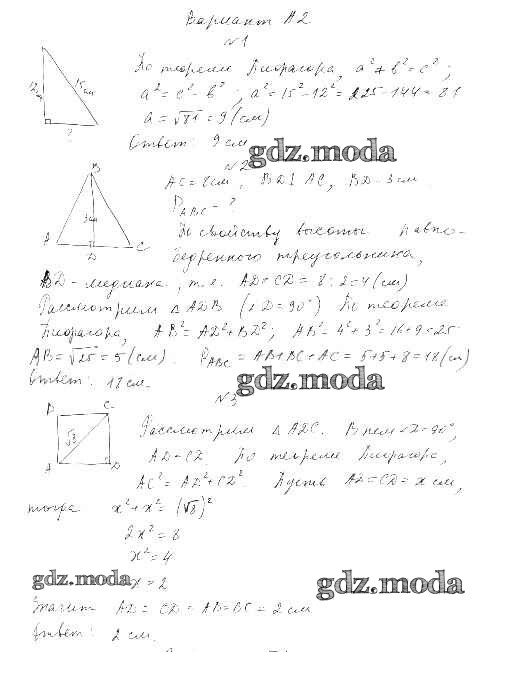 Вариант А2
№1
12 см
15 см
?
По теореме Пифагора, a² + b² = c² ;
a² = c² - b² ; a² = 15² - 12² = 225 - 144 = 81
a = √81 = 9 (см)
Ответ: 9 см
gdz.moda
№2
B
A
D
C
3см
AC = 8 см, BD ⊥ AC, BD - 3 см.
P ABC = ?
По свойству высоты равно-
бедренного треугольника,
BD - медиана, т.е. AD = CD = 8 : 2 = 4 (см)
Рассмотрим △ ADB (∠D = 90°) По теореме
Пифагора, AB² = AD² + BD² ; AB² = 4² + 3² = 16 + 9 = 25
AB = √25 = 5 (см). P ABC = AB + BC + AC = 5 + 5 + 8 = 18 (см)
Ответ: 18 см.
gdz.moda
№3
B
C
√8
A
D
Рассмотрим △ ADC. В нем ∠D = 90°,
AD = CD По теореме Пифагора,
AC² = AD² + CD². Пусть AD = CD = x см,
тогда x² + x² = (√8)²
2x² = 8
x² = 4
gdz.moda
x = 2
gdz.moda
Значит AD = CD = AB = BC = 2 см
Ответ: 2 см.